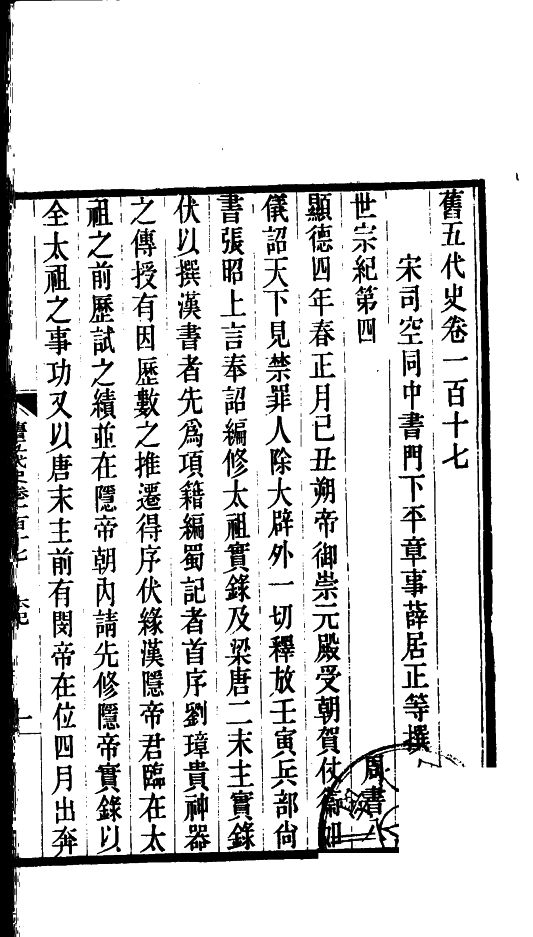 舊五代史卷一百十七
宋司空同中書門下平章事薛居正等撰
周書
世宗紀第四
顯德四年春正月己丑朔帝御崇元殿受朝賀仗衞如
儀詔天下見禁罪人除大辟外一切釋放壬寅兵部尚
書張昭上言奉詔編修太祖實錄及梁唐二末主實錄
伏以撰漢書者先爲項籍編蜀記者首序劉璋貴神器
之傳授有因歷數之推遷得序伏緣漢隱帝君臨在太
祖之前歷試之績並在隱帝朝內請先修隱帝實錄以
全太祖之事功又以唐末主前有閔帝在位四月出奔
舊五代史卷一百十七
一